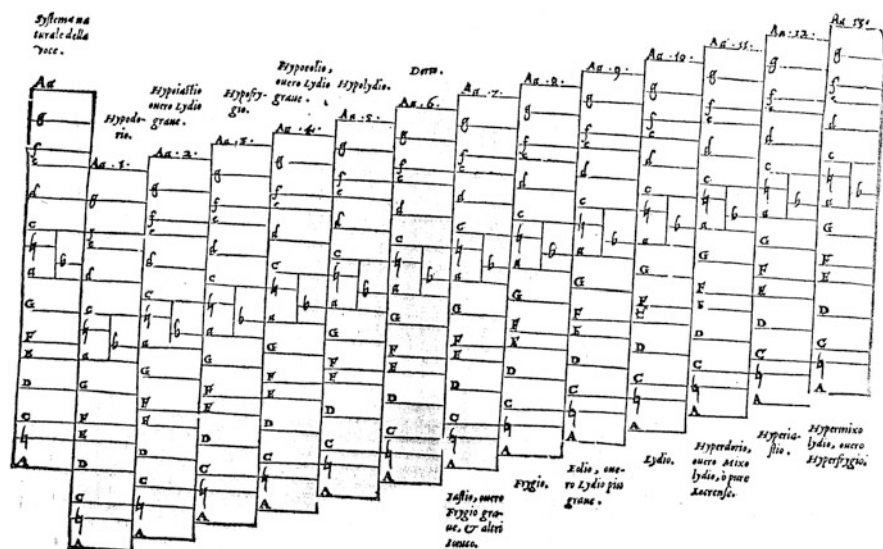 Systema na
turale della
voce.
Hypodo-
rio.
Hypoiastio
ouero Lydio
graue.
Hypofry-
gio.
Hypoeolio,
ouero Lydio
graue.
Hypolydio.
Dorio.
Aa
g
f
e
d
c
♮
b
a
G
F
E
D
C
♮
A
Aa.1.
Aa.2.
Aa.3.
Aa.4.
Aa.5.
Aa.6.
Aa.7.
Aa.8.
Aa.9.
Aa.10.
Aa.11.
Aa.12.
Aa.13.
Iastio, ouero
Frygio gra-
ue, & altri
Ionico.
Frygio.
Eolio, oue-
ro Lydio piu
graue.
Lydio.
Hyperdorio,
ouero Mixo
lydio, ò pure
Locrense.
Hyperia-
stio.
Hypermixo
lydio, ouero
Hyperfrygio.